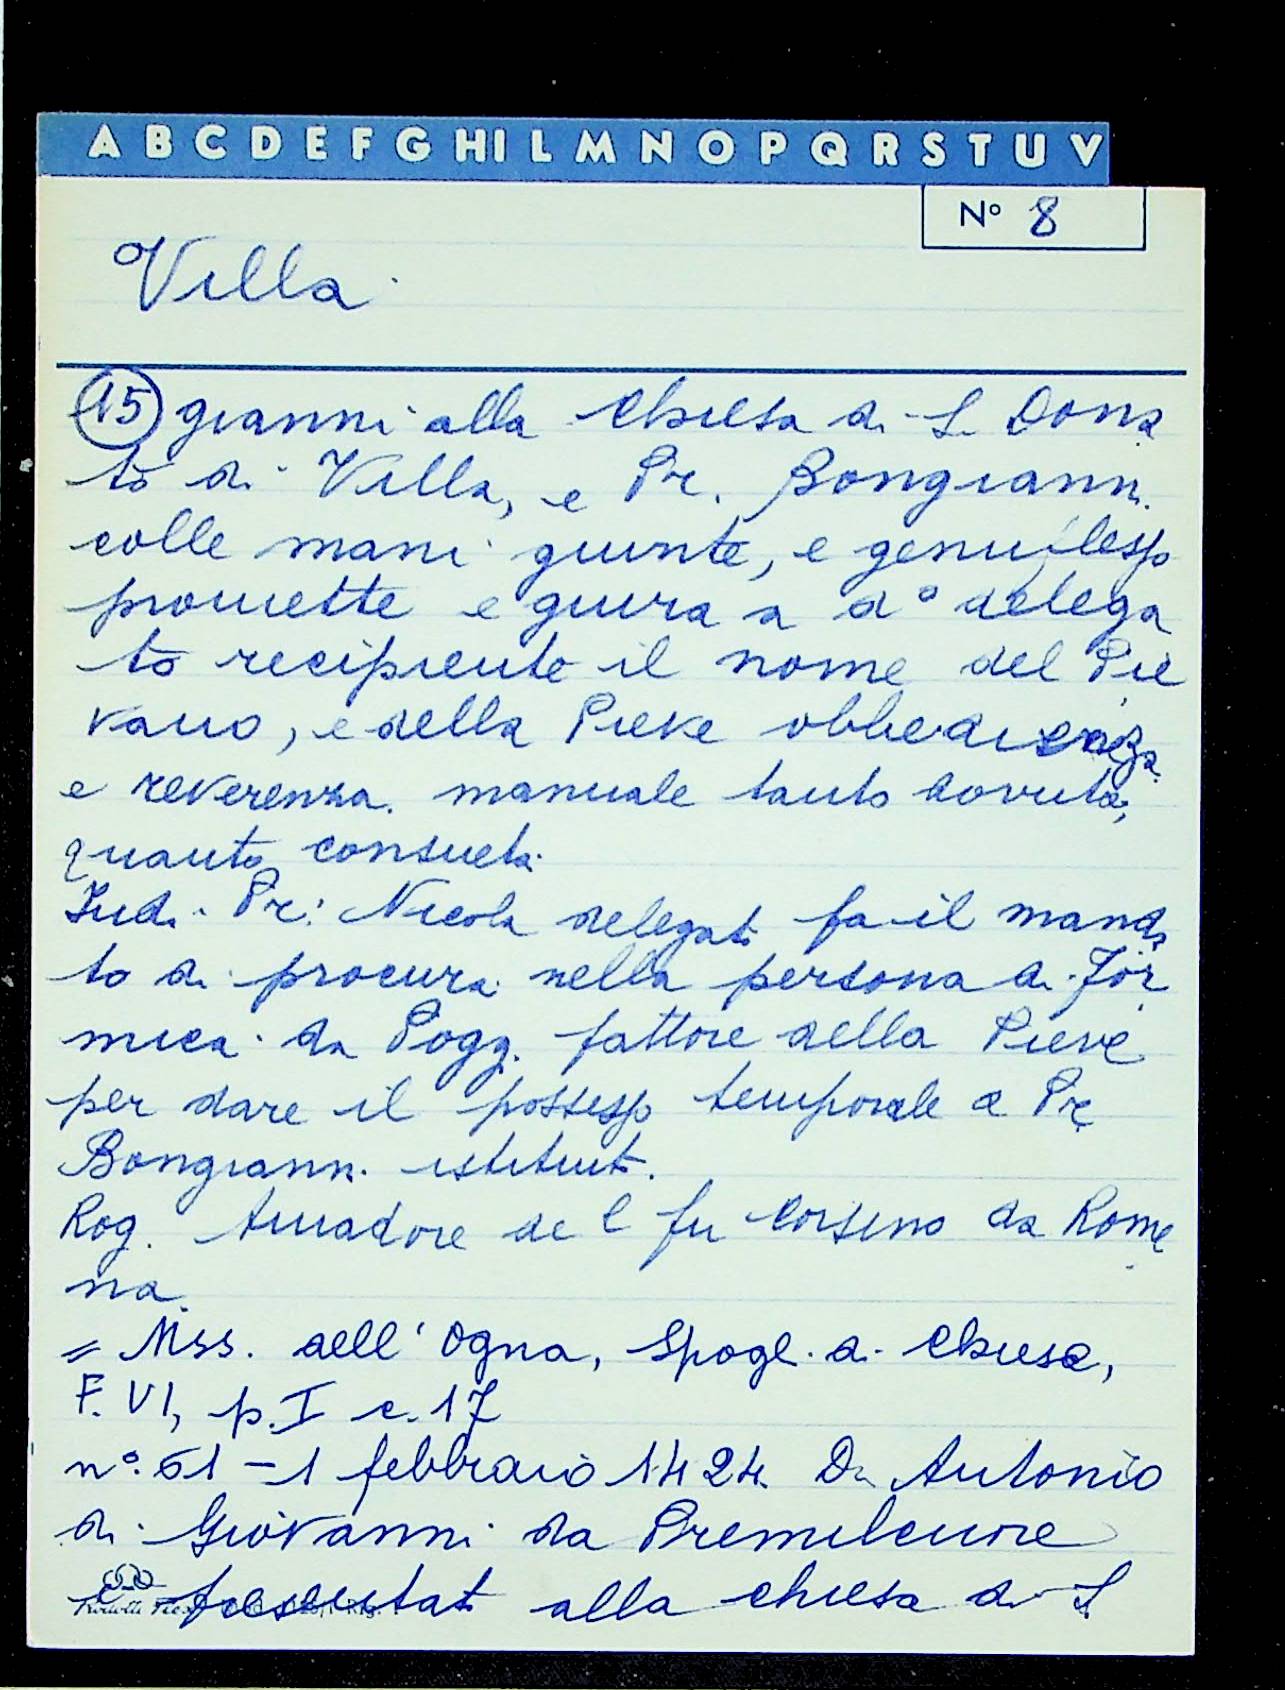 A B C D E F G H I L M N O P Q R S T U V
N° 8
Villa
15 gianni alla Chiesa di S. Dona
to di Villa, e Pr. Bongianni
colle mani giunte, e genuflesso
promette e giura a d° delega
to recipiente il nome del Pie
vano, e della Pieve obbedienza
e reverenza manuale tanto dovuta,
quanto consueta.
Ind. Pr. Nicola delegato fa il manda
to di procura nella persona di For
mica da Pogg. fattore della Pieve
per dare il possesso temporale a Pr
Bongianni istituito.
Rog. Amadore del fu Corsino da Rome
na.
= Mss. dell'Ogna, Spogl. di Chiese,
F. VI, p. I c. 17
n°. 61 - 1 febbraio 1424. Da Antonio
di Giovanni da Premilcuore
è presentato alla chiesa di S